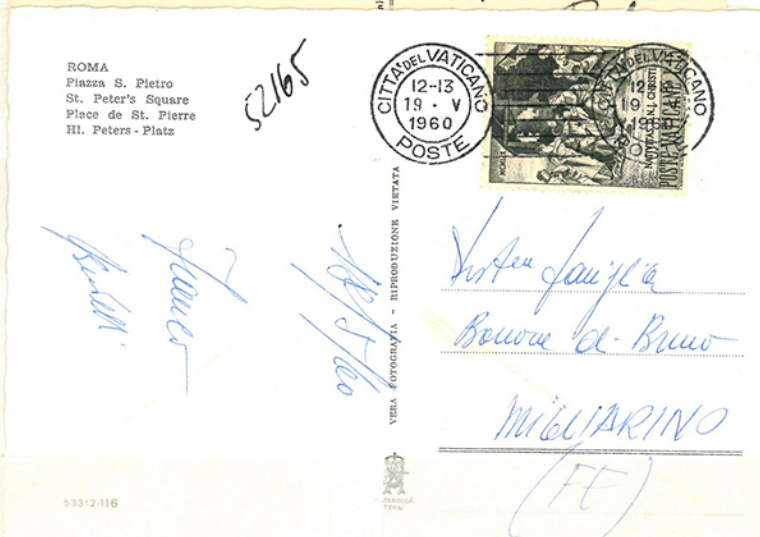 ROMA
Piazza S. Pietro
St. Peter's Square
Place de St. Pierre
Hl. Peters - Platz
52165
CITTA' DEL VATICANO
12-13
19 · V
1960
POSTE
CITTA' DEL VATICANO
NATIVITAS D.N.J. CHRISTI
POSTE VATICANE
VERA FOTOGRAFIA - RIPRODUZIONE VIETATA
18/5/60
Franco
famiglia
Bonore di Bruno
MIGLIARINO
(FE)
TERNI
53312/116